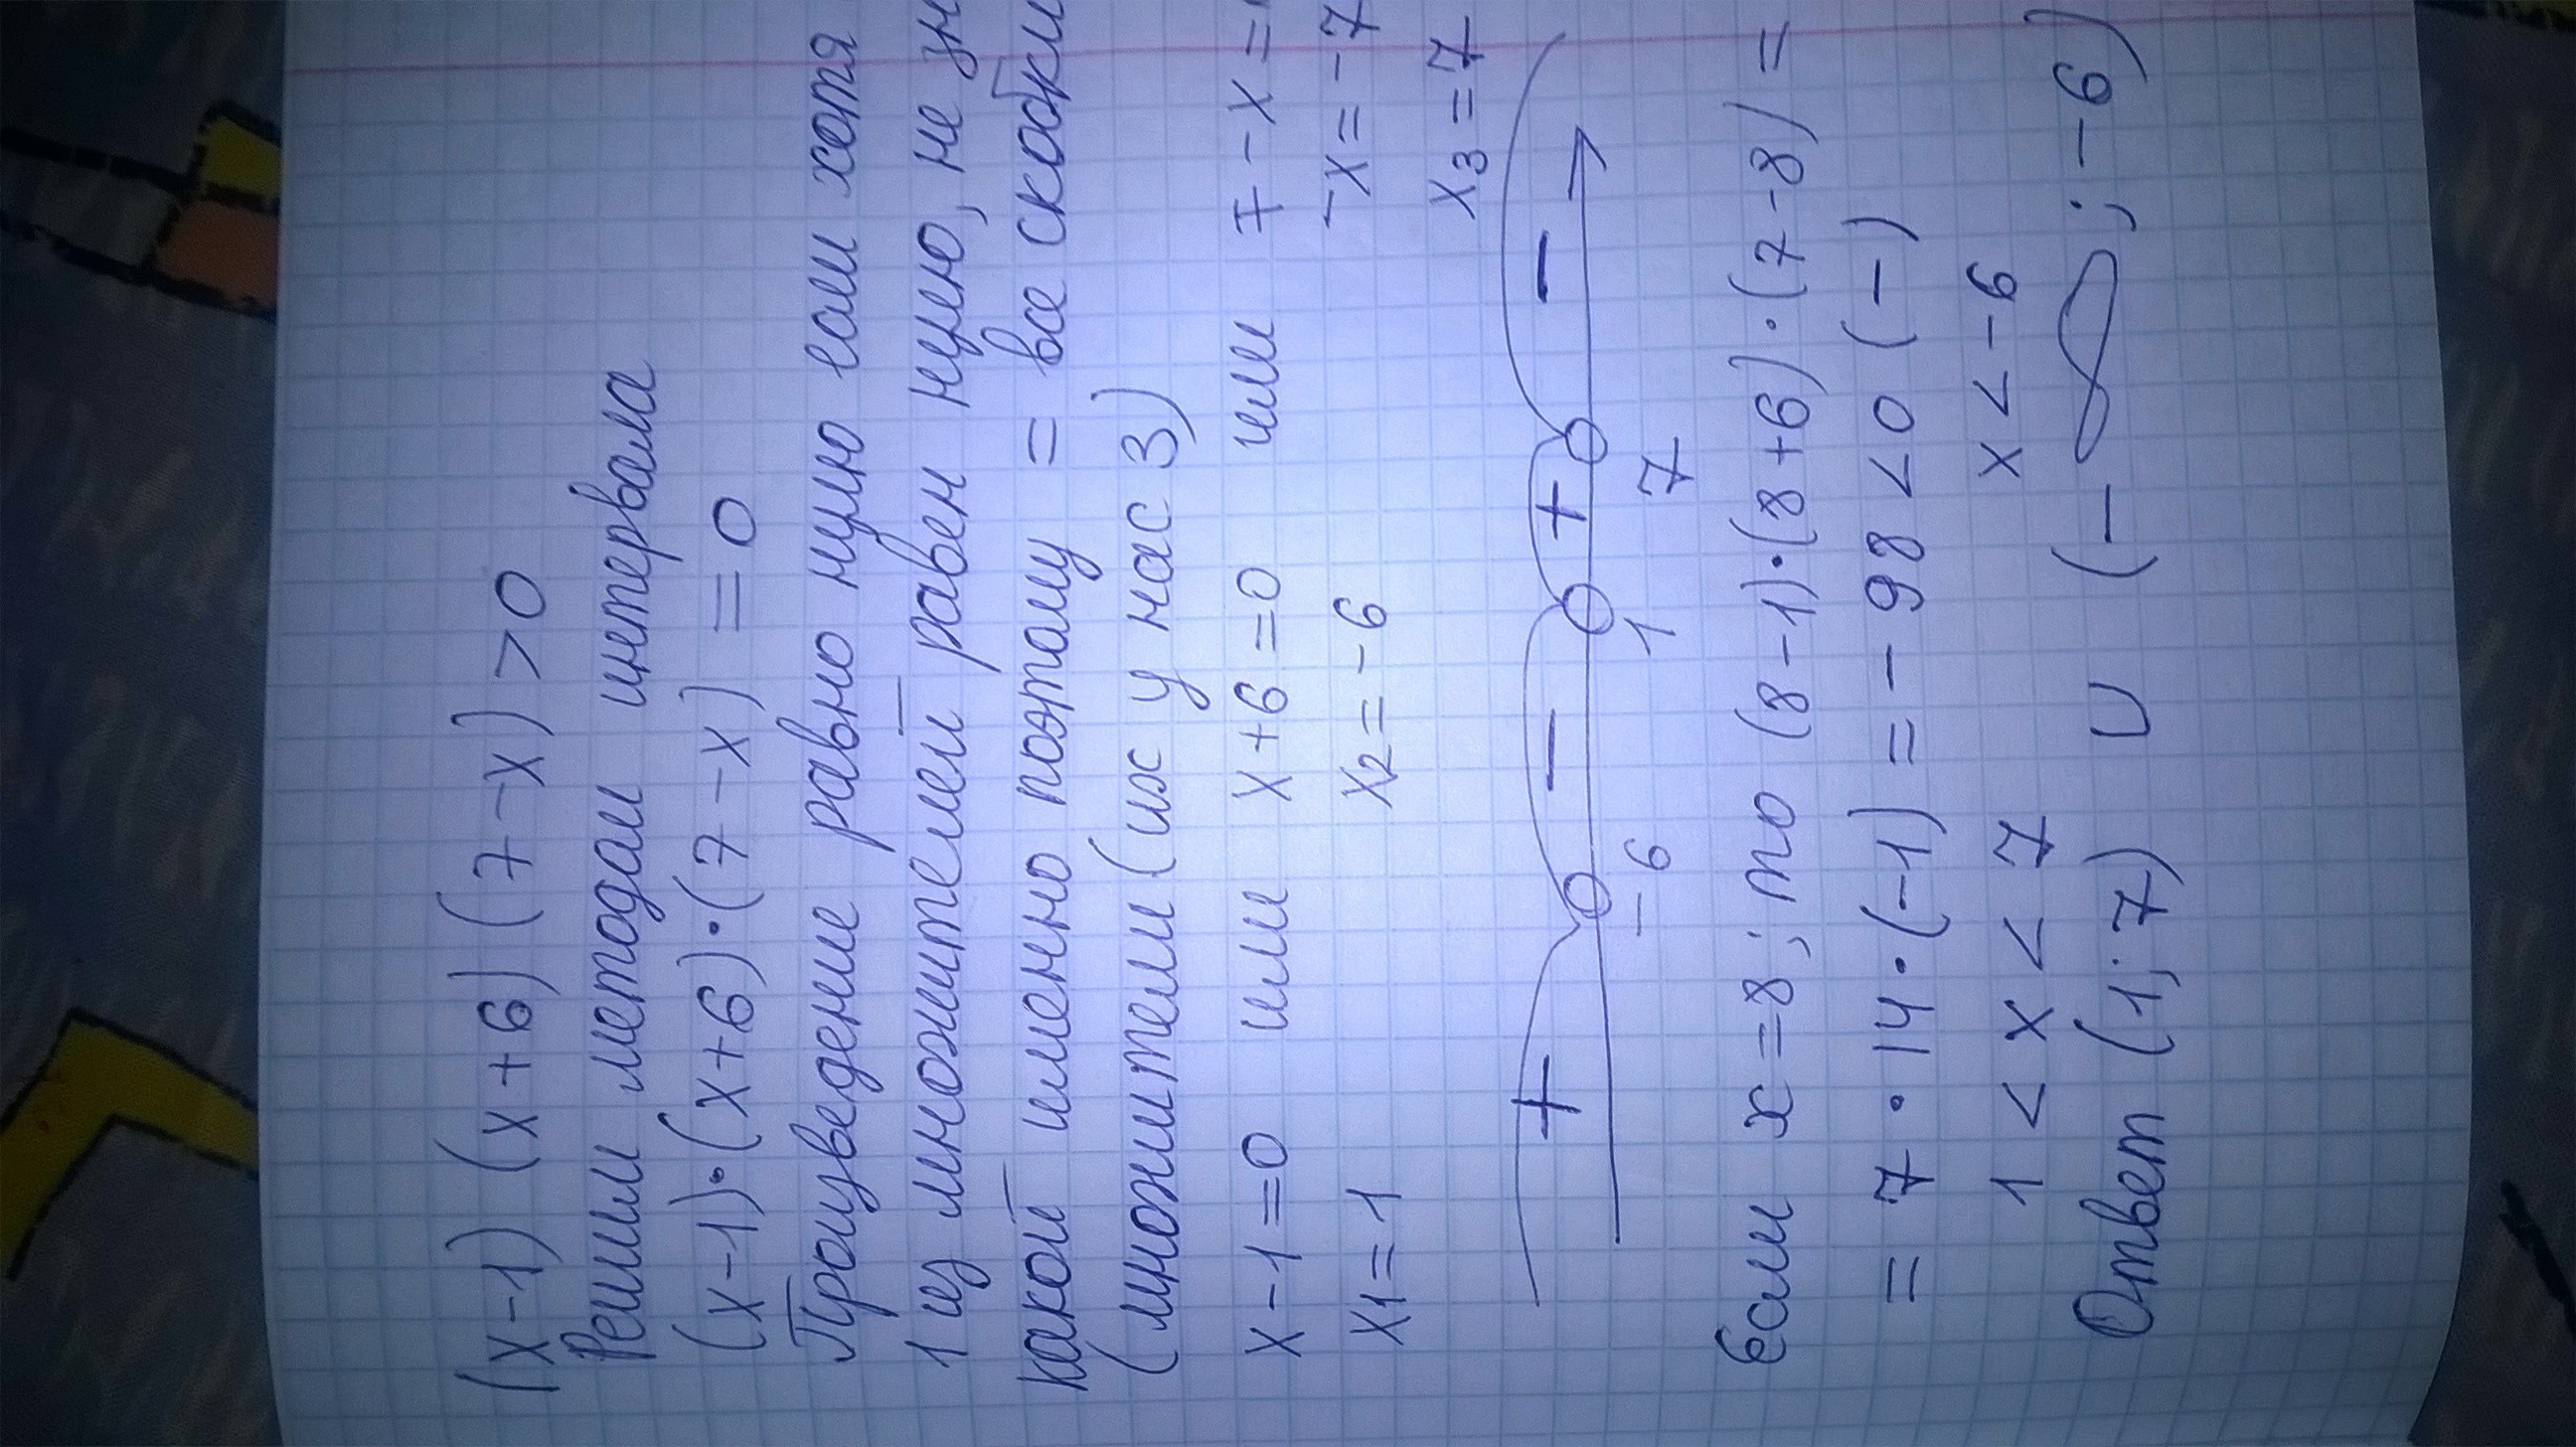 (x-1) (x+6) (7-x) >0
Решим методом интервала
(x-1)·(x+6)·(7-x) =0
Произведение равно нулю если хотя
1 из множителей равен нулю, не зн
какой именно поэтому = все скобки
(множители (их у нас 3)
x-1=0 или x+6=0 или 7-x=
x1=1 x2=-6 -x=-7
x3=7
+ - + -
-6 1 7
Если x=8; то (8-1)·(8+6)·(7-8)=
=7·14·(-1)=-98<0 (-)
1<x<7 x<-6
Ответ (1;7) ∪ (-∞;-6)